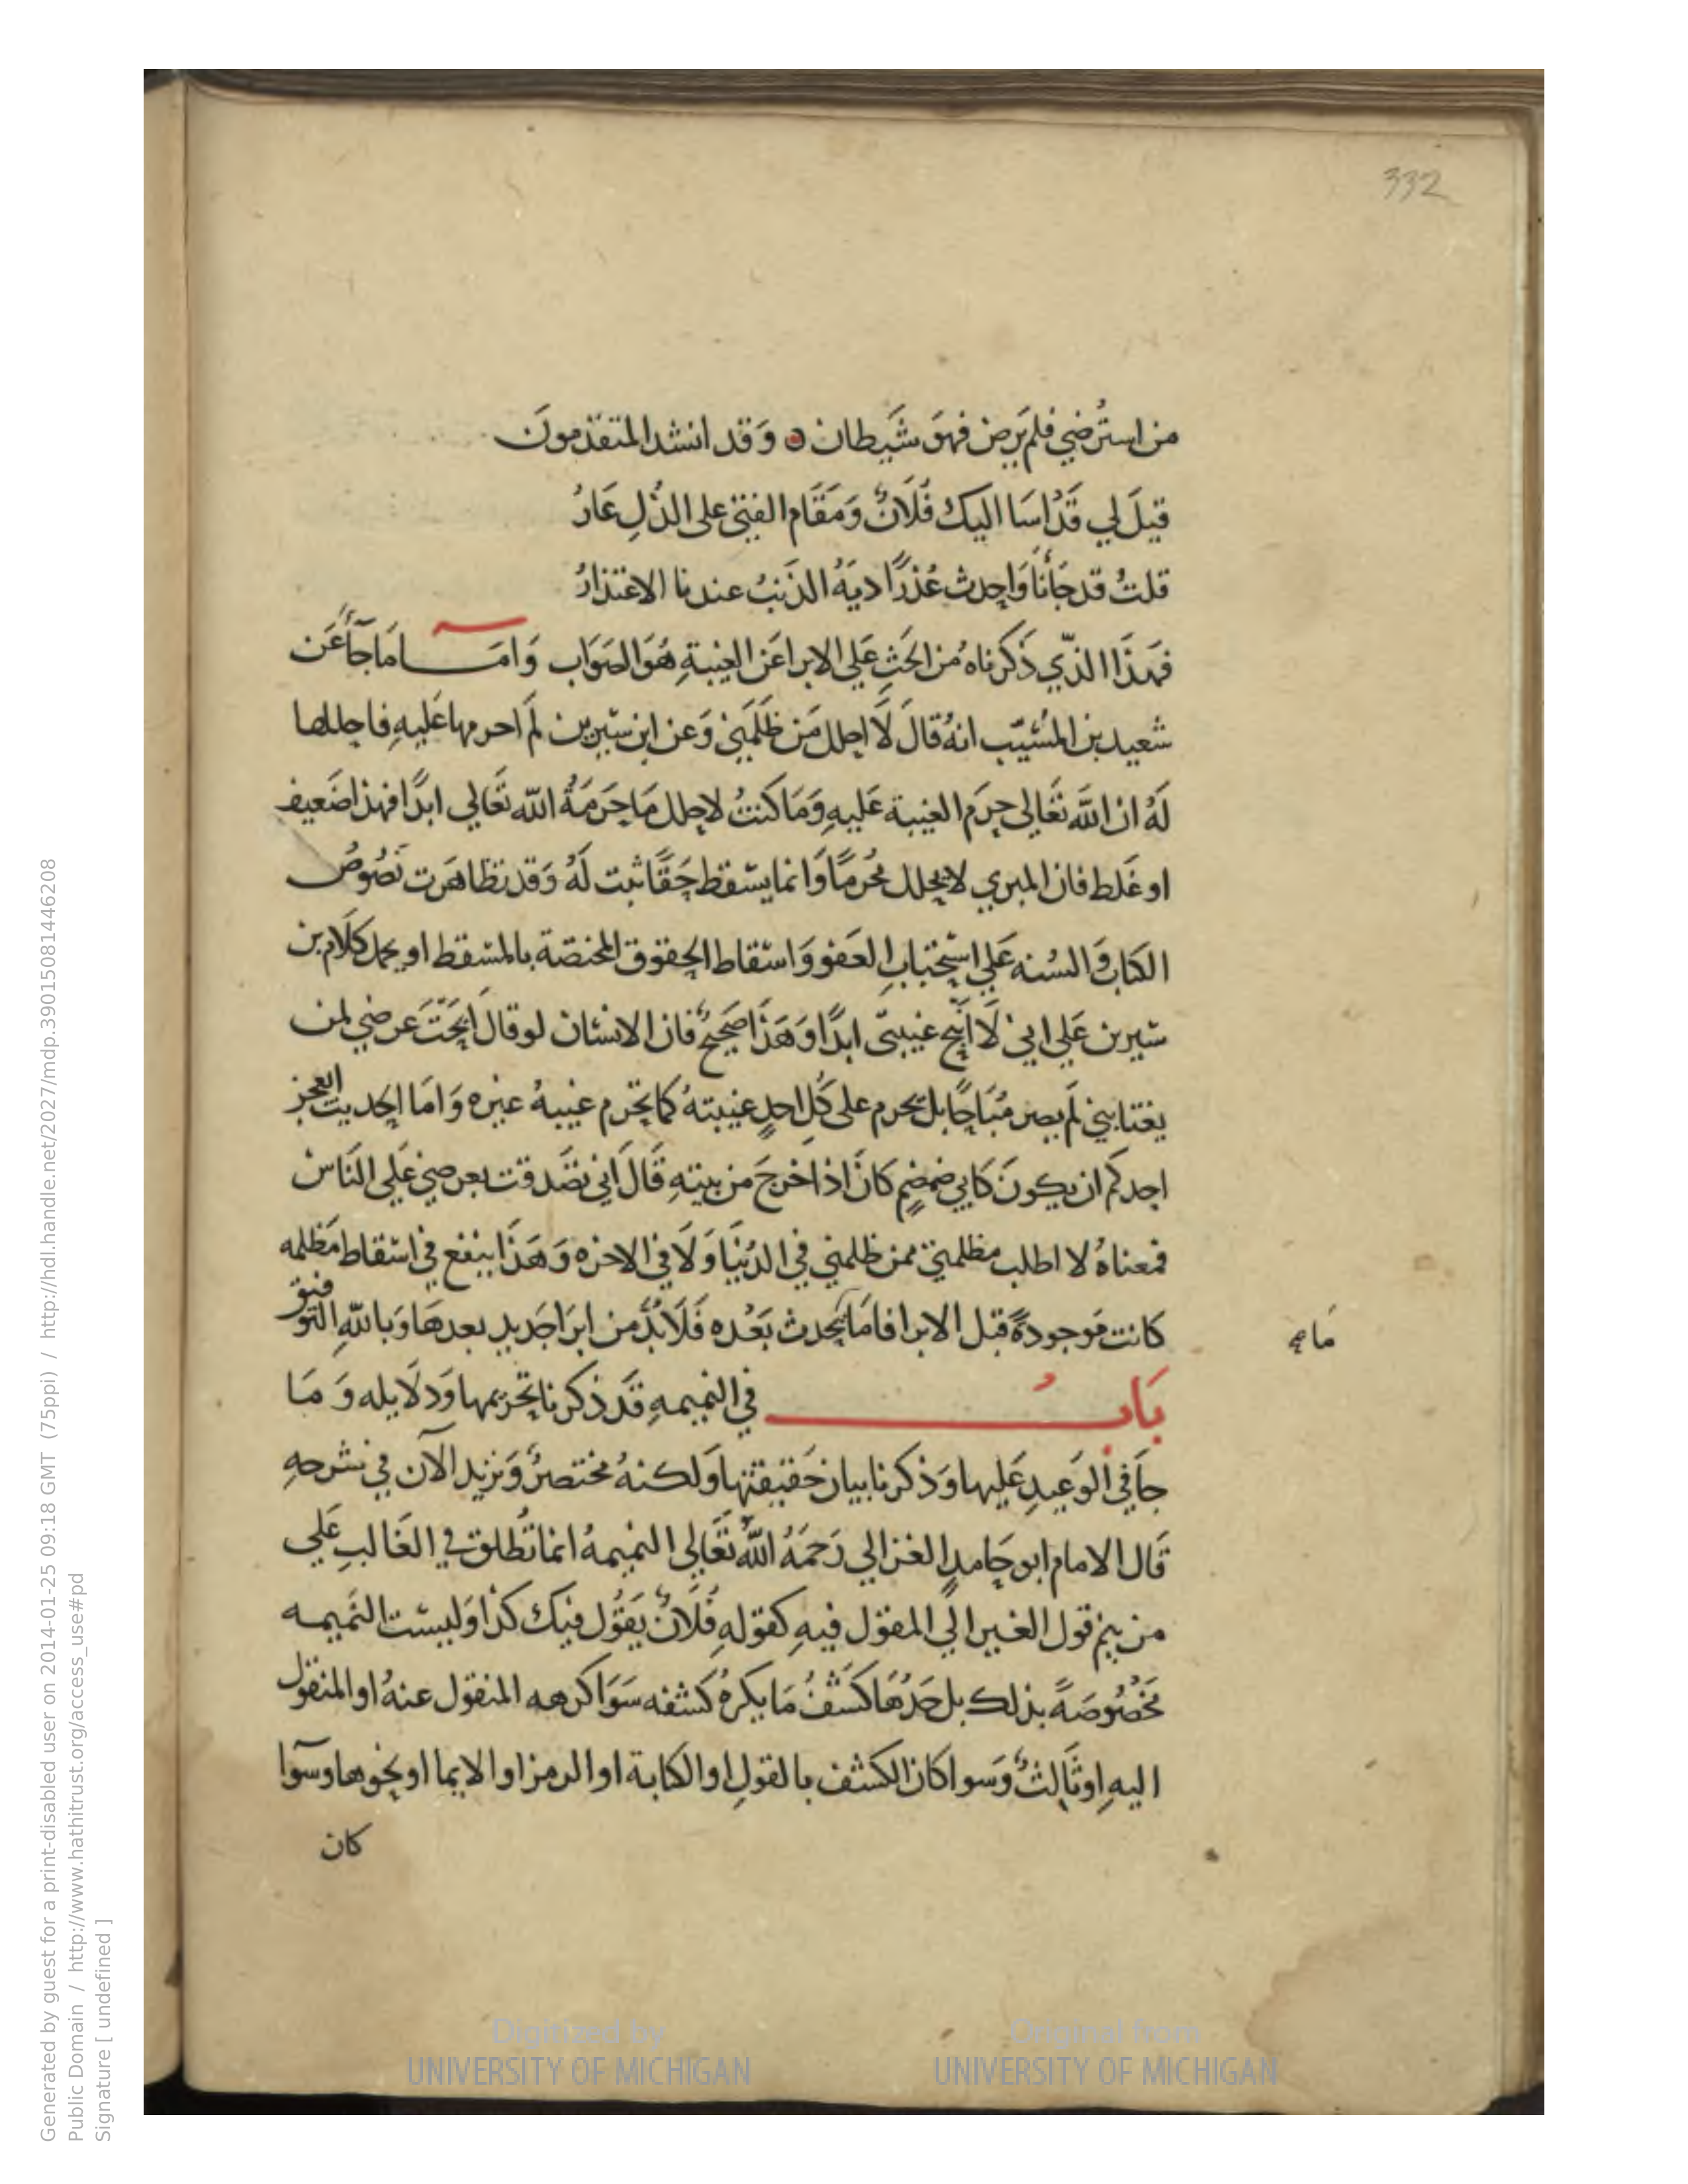 332
من استُرضي فلم يَرض فهوَ شَيطان ٥ وَقد انشد المتقدّمونَ
قيلَ لي قَدْ اسَا اليك فُلَانٌ وَمَقَام الفتى على الذُلِ عَارُ
قلتُ قد جَأنَا وَاحدث عُذرًا ديَةُ الذَنبُ عندنا الاعتذارُ
فهذَا الذّي ذَكرناهُ من الحَثِ عَلي الابرا عَن الغيبةِ هُوَ الصَوَاب وَامَــا مَا جآءَ عَن
سَعيد بن المُسَيّب انهُ قالَ لَا احلل مَن ظَلَمَني وَعن ابن سيرين لم احرمها عَليهِ فاحللها
لَهُ ان اللَّه تعَالي حرَم الغيبة عَليهِ وَمَا كنتُ لاحلل مَا حَرمَهُ اللّه تعَالي ابدًا فهذا ضَعيف
او غَلط فان المبري لا يحلل مُحرمًا وَانما يسقط حَقًا ثبت لَهُ وَقد تظاهَرت نصُوصُ
الكتاب وَالسُنه عَلي استحبابِ العَفو وَاسقاط الحقوق المختصّة بالمسقط او يحمل كلَام بن
سيرين عَلي اني لَا ابيح غيبتي ابدًا وَهَذَا صَحيحٌ فان الانسَان لو قال ابحَتَ عرضي لمن
يغتابني لَم يصر مُبَاحًا بل يحرم على كُلِ احدٍ غيبتهُ كما يحَرم غيبهُ غيره وَامَا الحَديث العجز
احدكم ان يكونَ كابي ضمضمٍ كانَ اذا خرجَ من بيتهِ قَالَ اني تصَدقت بعرضي عَلي النَاس
فمعناهُ لا اطلب مظلمتي ممن ظلمني في الدُنيَا وَلَا في الاخره وَهَذَا ينفع في اسقاط مَظلمه
كانت مَوجودةً قبل الابرا فامَا يحدث بَعْده فَلَابُدَّ من ابرَا جَديد بعدهَا وَبالله التَوفيق
مَا
بَابُ في النميمهِ قَد ذكرنا تحَريمها وَدلَايله وَمَا
جاَ في الوَعيدِ عَليها وَذكرنا بيان حَقيقتها وَلكنهُ مختصرٌ وَنزيد الآن في شرحهِ
قَال الامام ابو حَامدٍ الغزالي رَحمَهُ اللهُ تعَالي النميمهُ انما تُطلق في الغَالبِ عَلي
من ينم قول الغير الي المقول فيهِ كقولهِ فُلَانٌ يَقوُل فيك كذا وَليست النَميمه
مَخصُوصَةً بذلك بل حَدُهَا كَشفُ مَا يكرهُ كشفه سَوَا كرهه المنقول عنهُ او المنقول
اليهِ او ثَالثٌ وَسوا كانَ الكشف بالقولِ او الكتابة او الرمز او الايما او نحوها وسَوآ
كان
Generated by guest for a print-disabled user on 2014-01-25 09:18 GMT (75ppi) / http://hdl.handle.net/2027/mdp.39015081446208
Public Domain / http://www.hathitrust.org/access_use#pd
Signature [ undefined ]
Digitized by
UNIVERSITY OF MICHIGAN
Original from
UNIVERSITY OF MICHIGAN